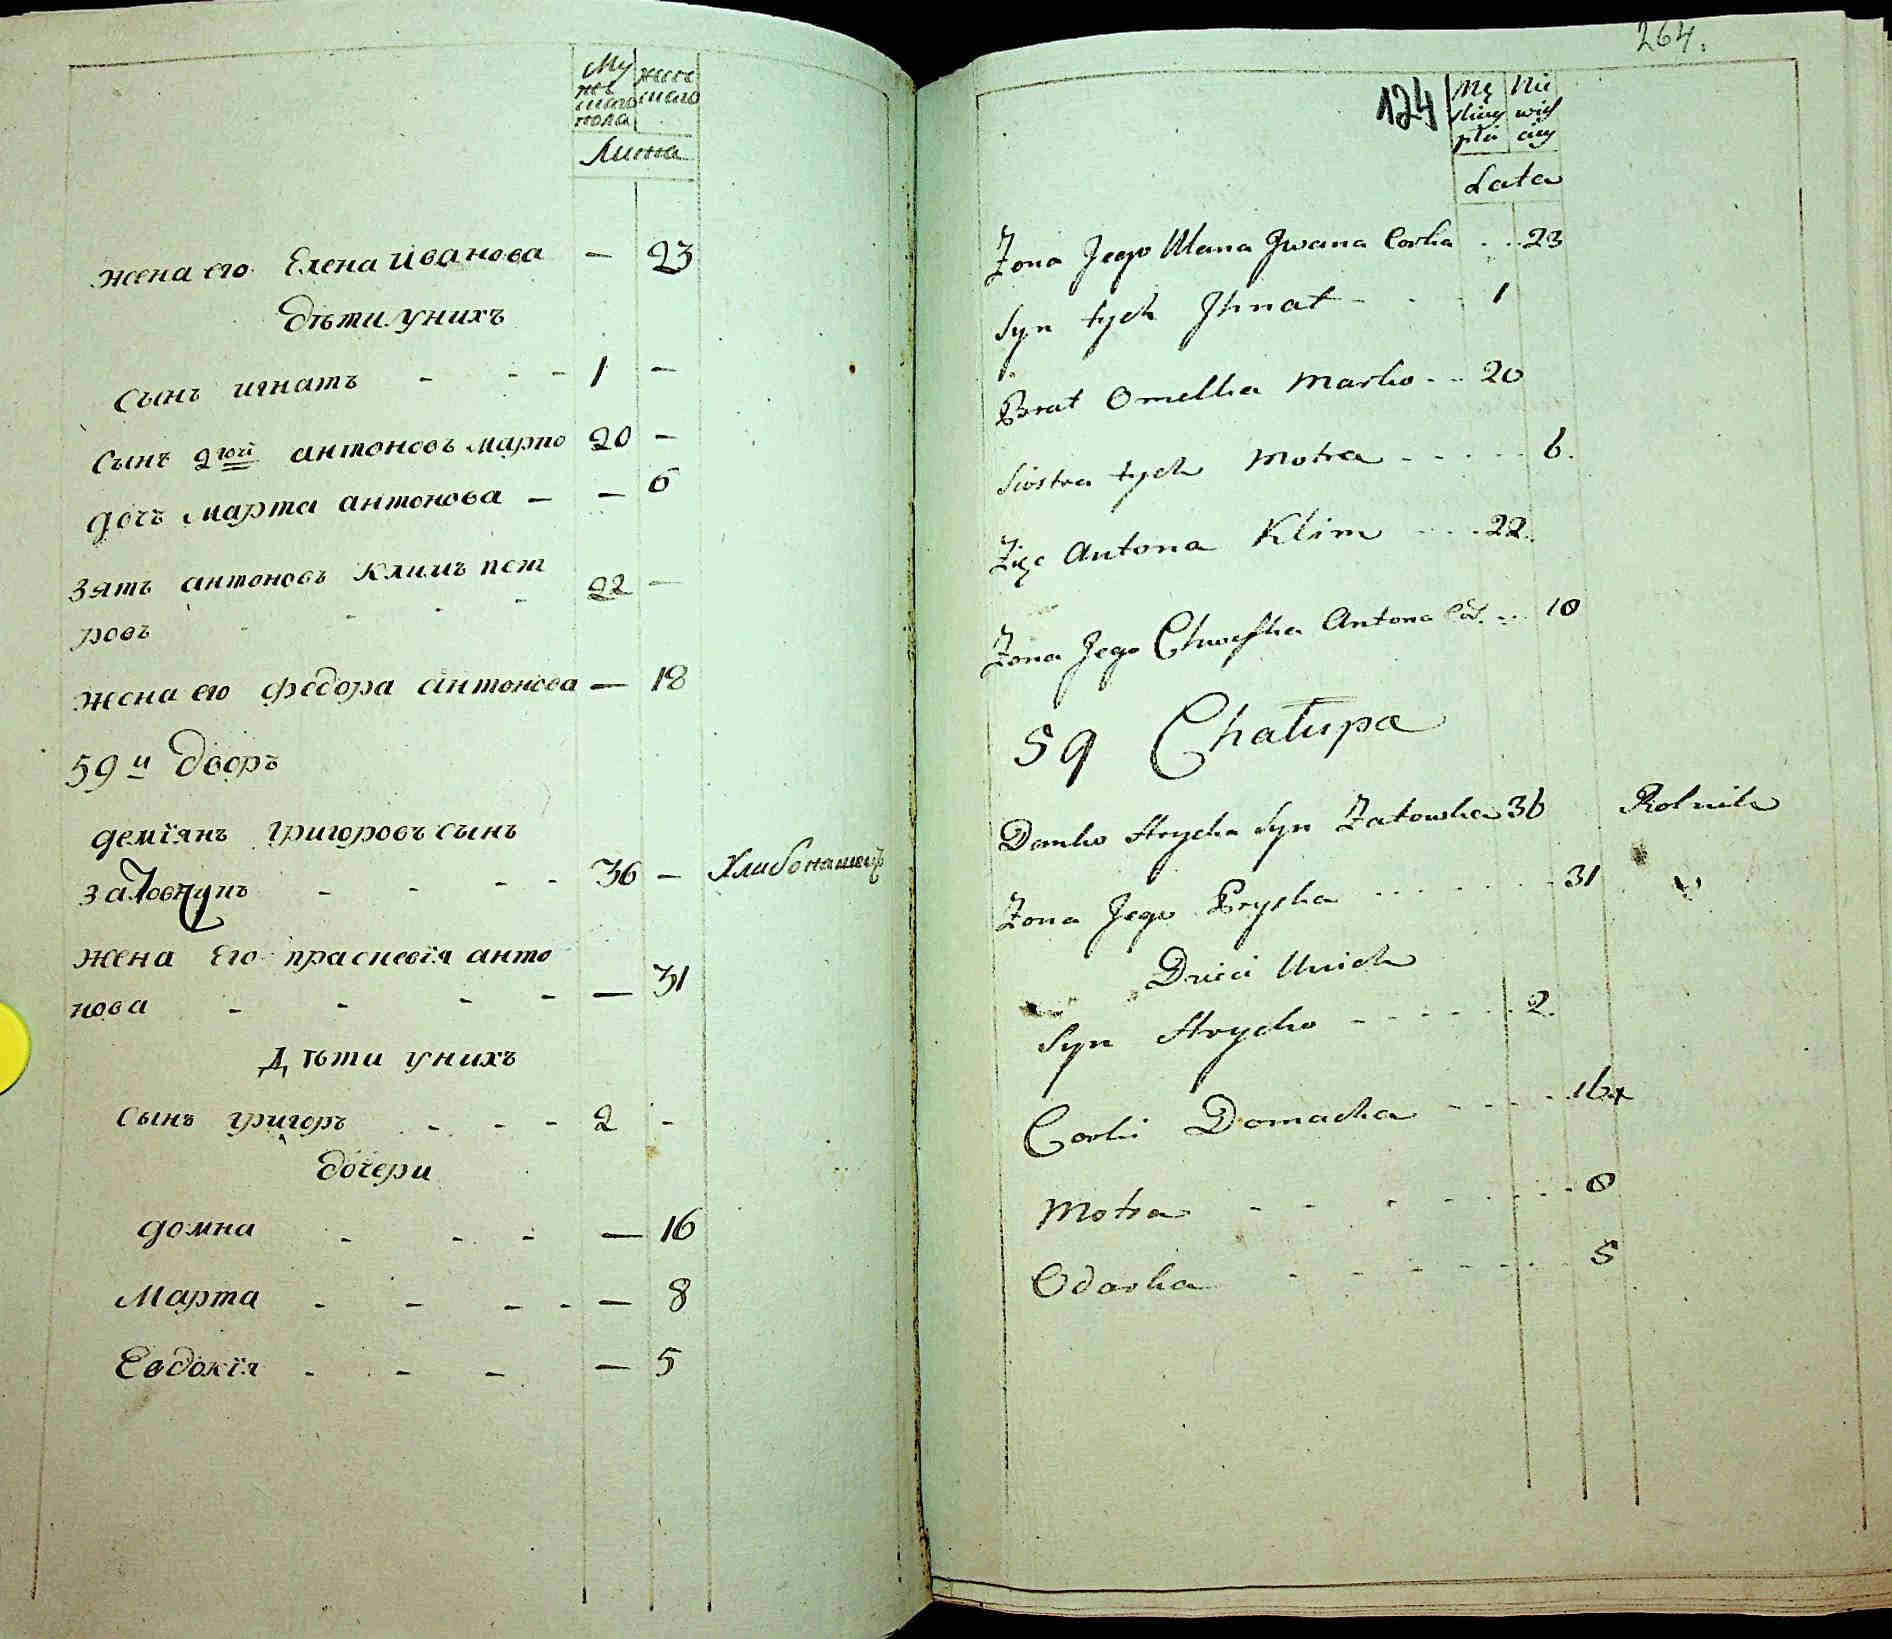 Му жеска пола
Лѣта
жена его Елена иванова — 23
дѣти унихъ
сынъ игнатъ - - - 1 —
сынъ 2гой антоновъ марко 20 —
дочъ марта антонова — — 6
зятъ антоновъ климъ пет
ровъ - - - 22 —
жена его федора антонова — 18
59й дворъ
демїянъ григоровъ сынъ
- - - 36 —
жена его праскевїя анто
нова - - - - — 31
дѣти унихъ
сынъ григоръ - - - 2 -
дочери
домна - - - — 16
Марта - - - - — 8
Евдокїя - - - — 5
264.
124
Mę skiey płci
Nie wieś ciey
Lata
Żona Jego Ulana Jwana Corka - - 23
Syn tych Jhnat - - - 1
Brat Omelka Marko - - 20
Siostra tych Motra - - - - - 6.
Zięc Antona Klim - - - 22.
Żona Jego Chweska Antona Cor. - - 18
59 Chałupa
Demko Hrycka Syn 36 Rolnik
Żona Jego Pryska - - - - - - 31
Dzieci Unich
Syn Hrycko - - - - - - 2.
Corki Domacha - - - - 16
Motra - - - - - - - 8
Odarka - - - - - - - 5